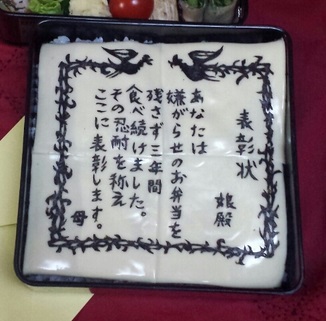 表彰状
娘殿
あなたは
嫌がらせのお弁当を
残さず三年間
食べ続けました。
その忍耐を称え
ここに表彰します。
母